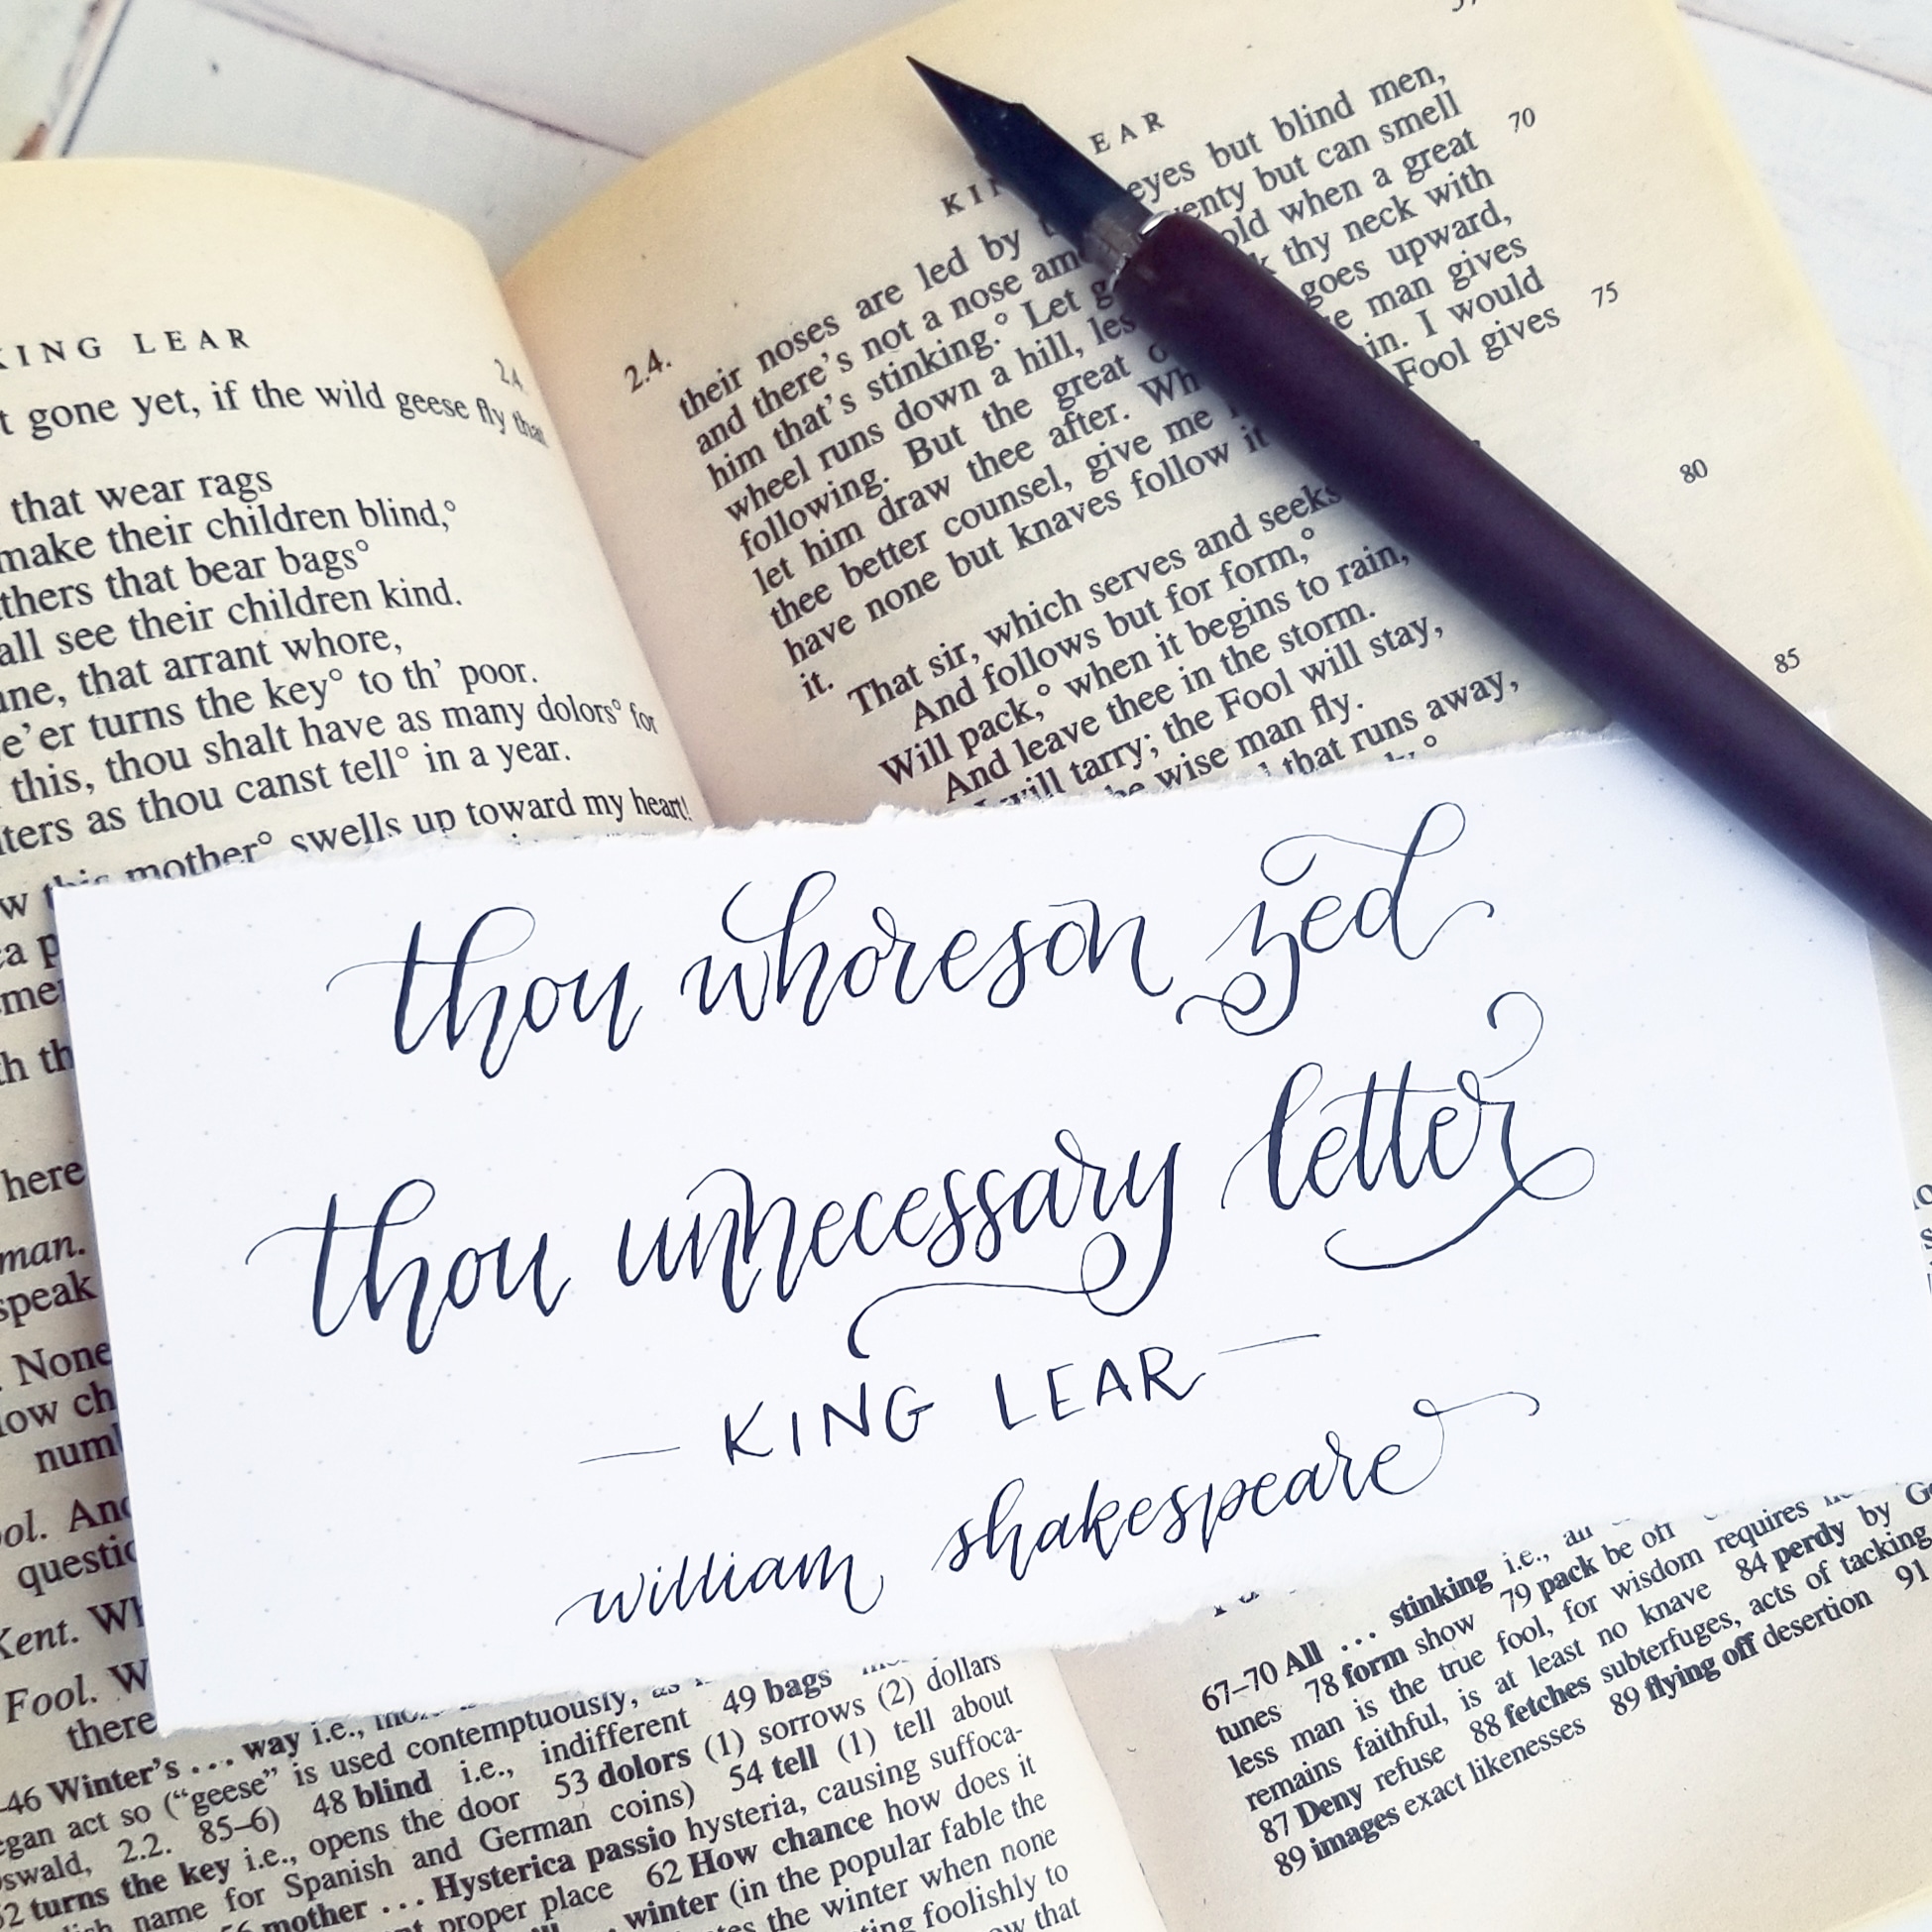 KING LEAR
2.4.
t gone yet, if the wild geese fly that
that wear rags
make their children blind,°
thers that bear bags°
all see their children kind.
une, that arrant whore,
e'er turns the key° to th' poor.
this, thou shalt have as many dolors° for
ters as thou canst tell° in a year.
this mother° swells up toward my heart!
here
man.
speak
None
low ch
num
ool. And
questio
Kent. Wh
Fool. W
there
-46 Winter's ... way i.e.,
egan act so ("geese" is used contemptuously, as
swald, 2.2. 85–6) 48 blind i.e., indifferent 49 bags
52 turns the key i.e., opens the door 53 dolors (1) sorrows (2) dollars
lish name for Spanish and German coins) 54 tell (1) tell about
56 mother ... Hysterica passio hysteria, causing suffoca-
proper place 62 How chance how does it
winter (in the popular fable the
the winter when none
ting foolishly to
ow that
EAR
2.4.
their noses are led by eyes but blind men,
and there's not a nose among enty but can smell
him that's stinking.° Let go old when a great 70
wheel runs down a hill, lest k thy neck with
following. But the great o goes upward,
let him draw thee after. Wh e man gives
thee better counsel, give me in. I would
have none but knaves follow it Fool gives 75
it.
That sir, which serves and seeks
And follows but for form,°
Will pack,° when it begins to rain, 80
And leave thee in the storm.
I will tarry; the Fool will stay,
the wise man fly.
that runs away,
85
thou whoreson zed
thou unnecessary letter
— KING LEAR —
william shakespeare
67–70 All ... stinking i.e., all
tunes 78 form show 79 pack be off
less man is the true fool, for wisdom requires
remains faithful, is at least no knave 84 perdy by Go
87 Deny refuse 88 fetches subterfuges, acts of tacking
89 images exact likenesses 89 flying off desertion 91